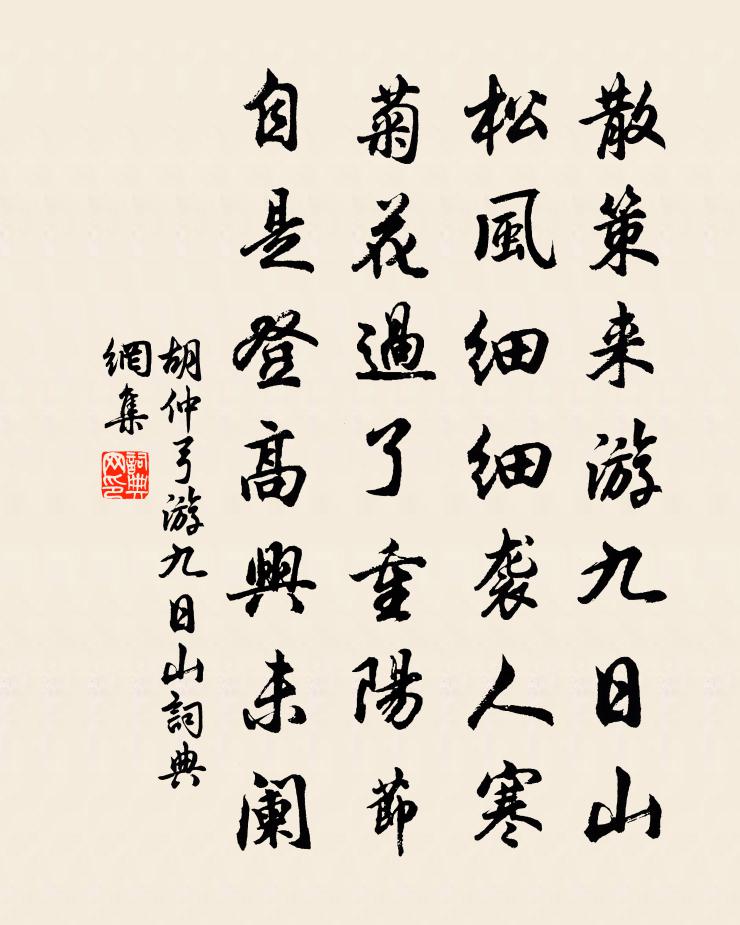 散策来游九日山
松風细细袭人寒
菊花過了重陽節
自是登髙興未阑
胡仲弓游九日山詞典
網集
詞典
网印